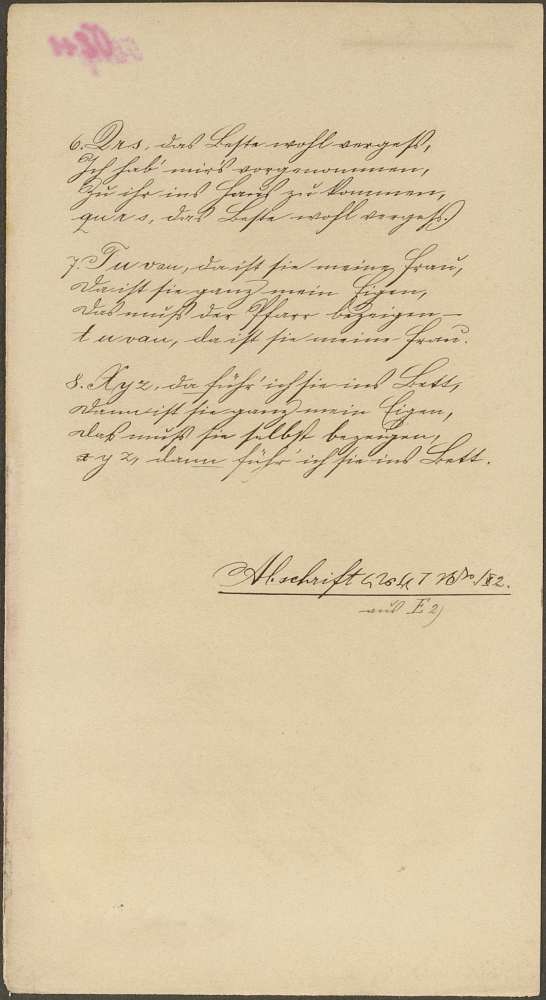 6. Qrs, das Beste wohl vergeß,
Ich hab' mir's vorgenommen,
Zu ihr ins Haus zu kommen,
q u r s, das Beste wohl vergeß.
7. Tu vau, da ist sie meine Frau,
Da ist sie ganz mein Eigen,
Das muß der Pfarr bezeigen –
t u vau, da ist sie meine Frau.
8. Xyz, da führ' ich sie ins Bett,
Dann ist sie ganz mein Eigen,
Das muß sie selbst bezeigen,
x y z, dann führ' ich sie ins Bett.
Abschrift
aus E 2)